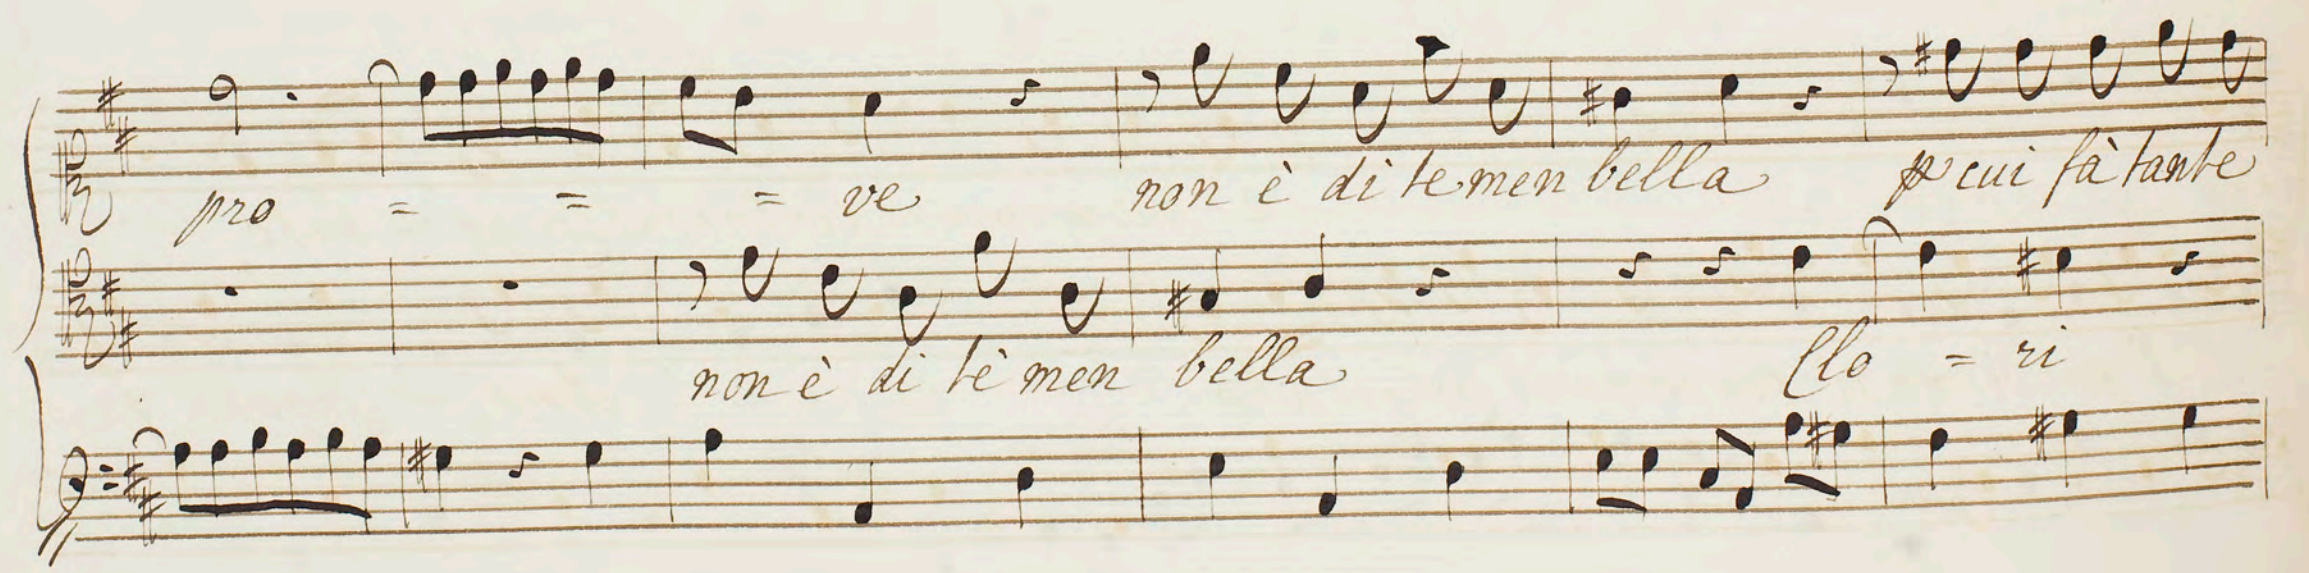 pro = = = ve non è di te men bella p cui fà tante
non è di tè men bella Clo = ri